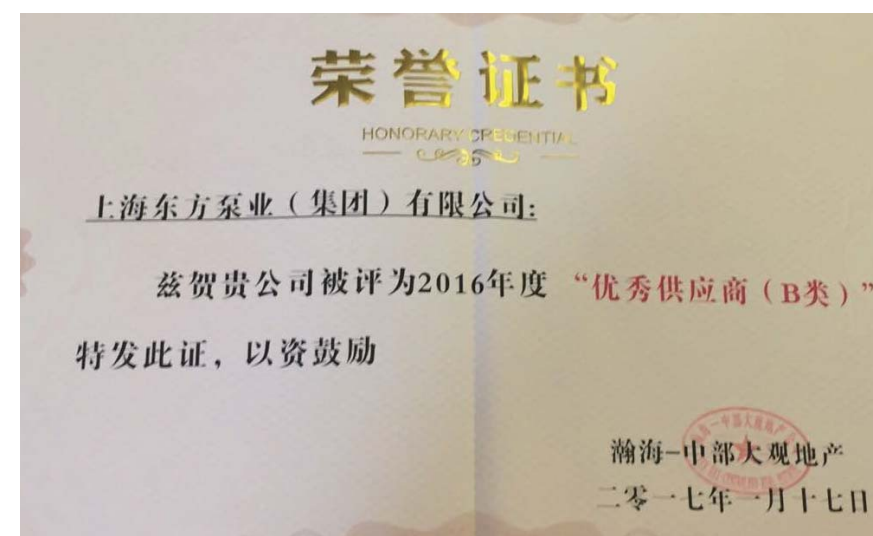 荣誉证书
HONORARY CREDENTIAL
上海东方泵业（集团）有限公司:
兹贺贵公司被评为2016年度“优秀供应商（B类）”
特发此证，以资鼓励
瀚海-中部大观地产
二零一七年一月十七日